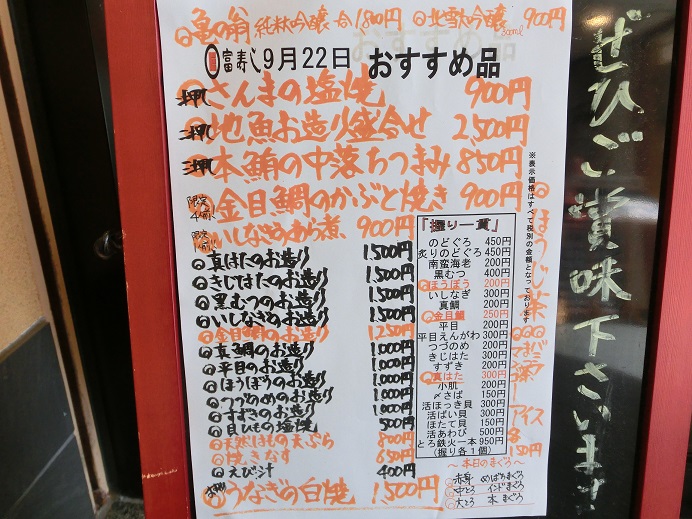 亀の翁 純米吟醸 一合 1,800円 北雪大吟醸 300ml 900円
富寿し 9月22日 おすすめ品
押 さんまの塩焼 900円
押 地魚お造り盛合せ 2,500円
押 本鮪の中落ちつまみ 850円
限定4個! 金目鯛のかぶと焼き 900円
限定 いしなぎあら煮 900円
真はたのお造り 1,500円
きじはたのお造り 1,500円
黒むつのお造り 1,500円
いしなぎのお造り 1,500円
金目鯛のお造り 1,250円
真鯛のお造り 1,000円
平目のお造り 1,000円
ほうぼうのお造り 1,000円
つづのめのお造り 1,000円
すずきのお造り 1,000円
貝ひもの塩焼 500円
天然はもの天ぷら 800円
焼きなす 650円
えび汁 400円
うなぎの白焼 1,500円
「握り一貫」
のどぐろ 450円
炙りのどぐろ 450円
南蛮海老 200円
黒むつ 400円
ほうぼう 200円
いしなぎ 300円
真鯛 200円
金目鯛 250円
平目 200円
平目えんがわ 300円
つづのめ 200円
きじはた 300円
すずき 200円
真はた 300円
小肌 200円
〆さば 150円
活ほっき貝 300円
活ばい貝 300円
ほたて貝 150円
活あわび 500円
とろ鉄火一本 950円
(握り各1個)
～本日のまぐろ～
赤身 めばちまぐろ
中とろ インドまぐろ
大とろ 本まぐろ
※表示価格はすべて税別の金額となっております
ほうじ茶
アイス
各150円
ぜひご賞味下さいませ